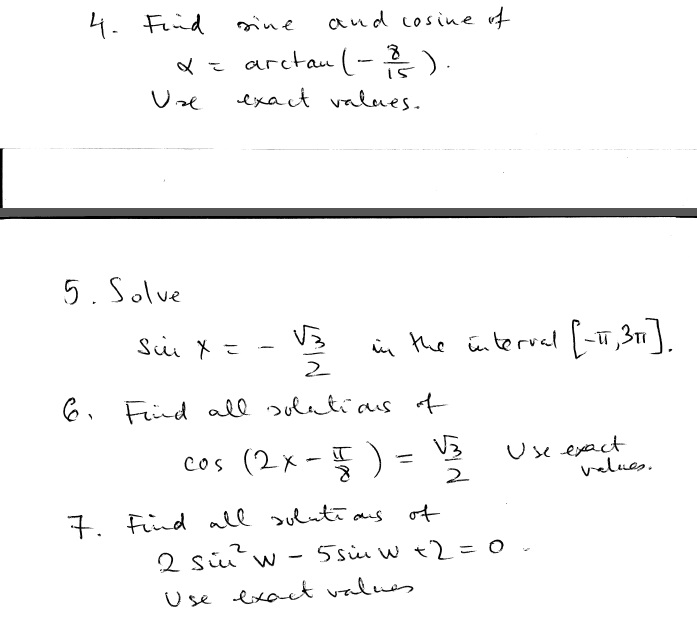 4. Find sine and cosine of
α = arctan(-8/15).
Use exact values.
5. Solve
sin x = -√3/2 in the interval [-π,3π].
6. Find all solutions of
cos (2x - π/8) = √3/2 Use exact values.
7. Find all solutions of
2 sin² w - 5 sin w + 2 = 0.
Use exact values